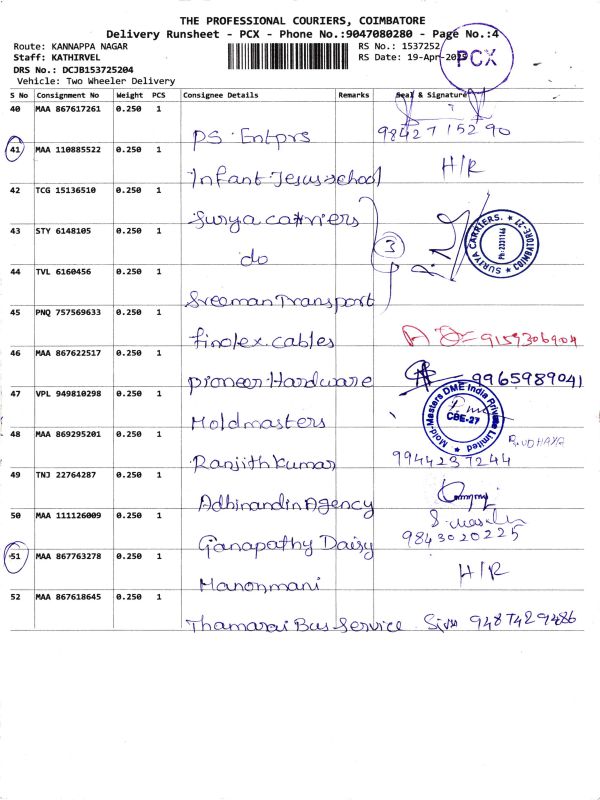 THE PROFESSIONAL COURIERS, COIMBATORE
Delivery Runsheet - PCX - Phone No.:9047080280 - Page No.:4
Route: KANNAPPA NAGAR RS No.: 1537252
Staff: KATHIRVEL RS Date: 19-Apr-2025
PCX
DRS No.: DCJB153725204
Vehicle: Two Wheeler Delivery
S No Consignment No Weight PCS Consignee Details Remarks Seal & Signature
40 MAA 867617261 0.250 1
PS. Entprs 98427 15290
41 MAA 110885522 0.250 1
Infant Jesus school H/R
42 TCG 15136510 0.250 1
Surya carriers
43 STY 6148105 0.250 1
do 3
SURIYA CARRIERS. * COIMBATORE-27 * Ph:2231146
44 TVL 6160456 0.250 1
Sreeman Transport
45 PNQ 757569633 0.250 1
finolex.cables 9159306904
46 MAA 867622517 0.250 1
pioneer Hardware 9965989041
47 VPL 949810298 0.250 1
Moldmasters
Mold-Masters DME India Private Limited * CBE-27
48 MAA 869295201 0.250 1
Ranjith kumar 9944237244
49 TNJ 22764287 0.250 1
Adhinandin Agency
50 MAA 111126009 0.250 1
Ganapathy Daisy 9843020225
51 MAA 867763278 0.250 1
Manonmani H/R
52 MAA 867618645 0.250 1
Thamarai Bus Service Siva 9487429486